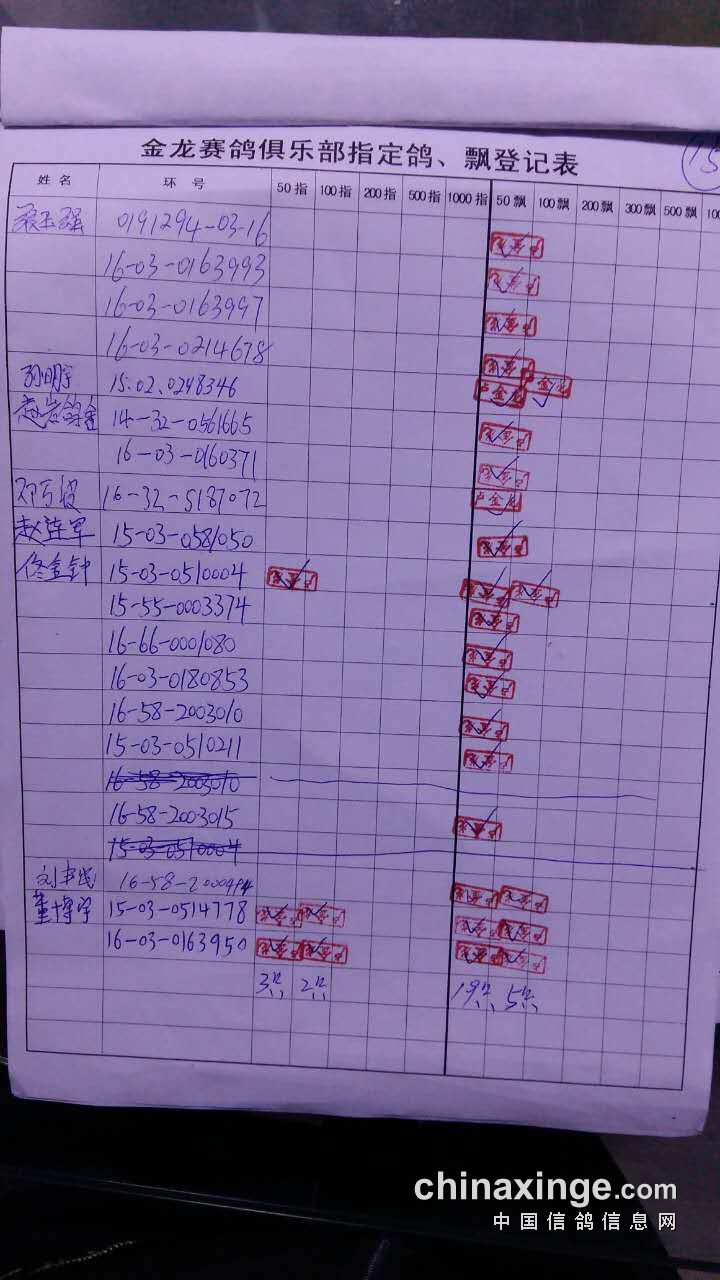 金龙赛鸽俱乐部指定鸽、飘登记表
15
姓名 环号 50指 100指 200指 500指 1000指 50飘 100飘 200飘 300飘 500飘 10
0191294-03-16
16-03-0163993
16-03-0163997
16-03-0214678
孙明宇 15.02.0248346
卢金龙 金龙
14-32-0561665
16-03-0160371
邓万俊 16-32-5187072 卢金龙
赵连军 15-03-0581050
佟金钟 15-03-0510004
15-55-0003374
16-66-0001080
16-03-0180853
16-58-2003010
15-03-0510211
16-58-2003010
16-58-2003015
15-03-0510004
16-58-2000494
15-03-0514778
16-03-0163950
3只 2只 19只 5只
chinaxinge.com
中国信鸽信息网